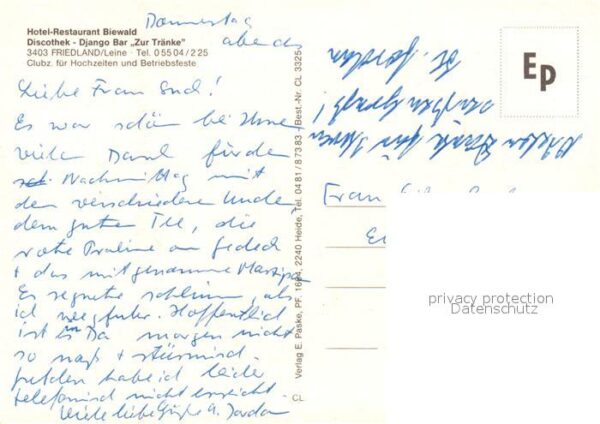 Donnerstag
abends
Hotel-Restaurant Biewald
Discothek - Django Bar „Zur Tränke"
3403 FRIEDLAND/Leine · Tel. 0 55 04 / 2 25
Clubz. für Hochzeiten und Betriebsfeste
Liebe Frau
Es war schön bei Ihnen
vielen Dank für den
Nachmittag mit
den verschiedenen
dem guten Tee, die
rote Praline am Gedeck
+ das mitgenommene Marzipan
Es regnete schlimm, als
ich wegfuhr. Hoffentlich
ist es morgen nicht
so naß + stürmisch.
habe ich leider
telefonisch nicht erreicht.
Viele liebe Grüße A. Jordan
Verlag E. Paske, PF. 1604, 2240 Heide, Tel. 04 81 / 8 73 83 - Best.-Nr. CL 3325
CL
Vielen Dank für Ihren
Jordan
Ep
Frau
privacy protection
Datenschutz